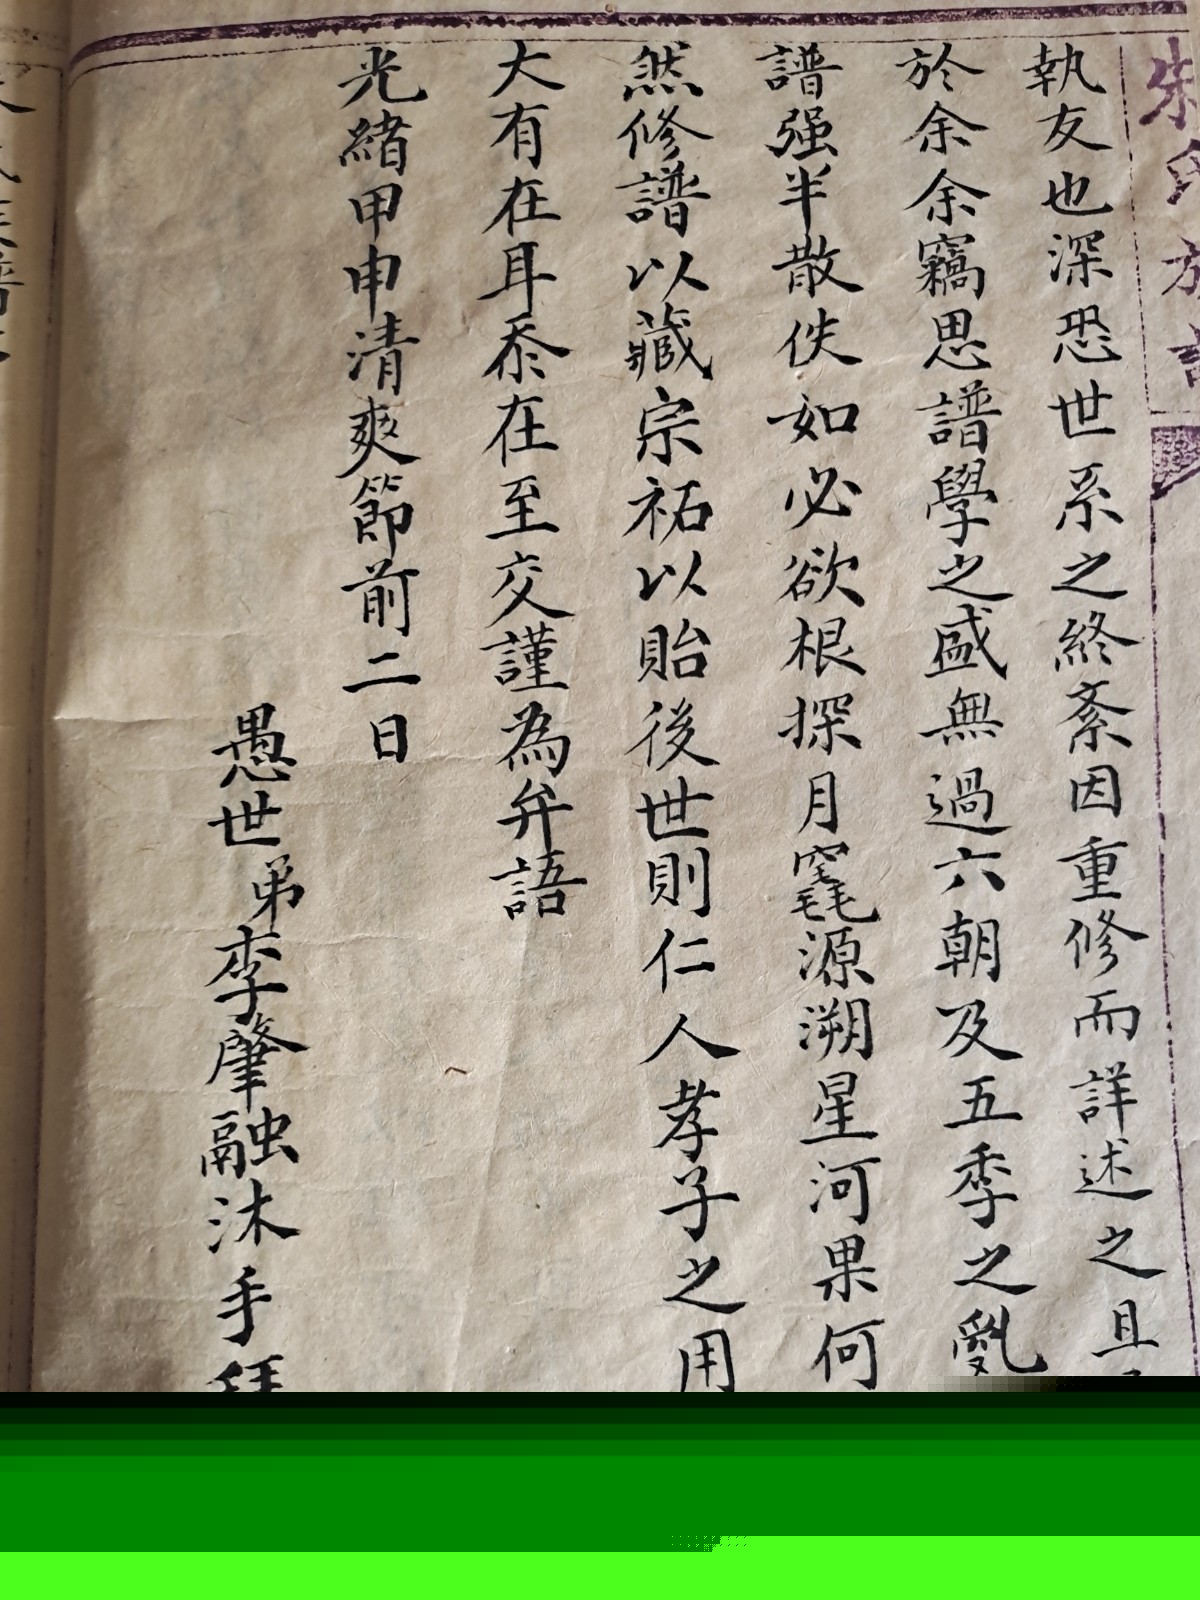 朱氏族譜
執友也深恐世系之終紊因重修而詳述之且
於余余竊思譜學之盛無過六朝及五季之亂
譜强半散佚如必欲根探月窟源溯星河果何
然修譜以藏宗祏以貽後世則仁人孝子之用
大有在耳忝在至交謹為弁語
光緒甲申清爽節前二日
愚世弟李肇融沐手拜